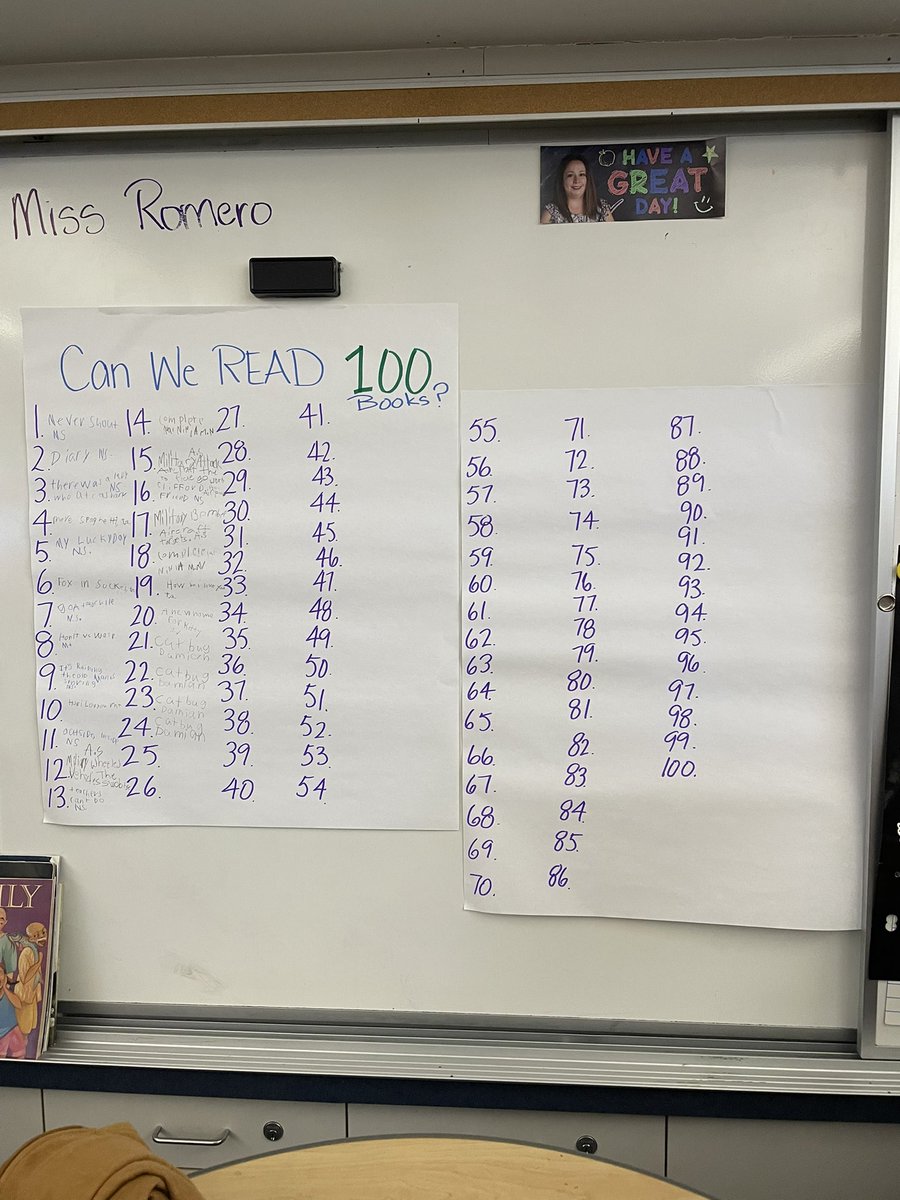 Miss Romero
HAVE A
GREAT
DAY!
Can We READ 100
Books?
1. Never Shout
NS
2. Diary NS.
3. there was a
NS
who ate a shark
4. more spaghetti
5. MY LUCKYDAY
NS.
6. Fox in Sucks
7.
NS.
8.
9. It's Raining
NS.
10.
11.
NS
12. A.S
Wheeled
Vehicles The
13. teachers
can't Do
NS.
14. Complete
M.N
15. A.S
Military Attack
16.
CLIFFORD
Friend NS
17. Military Bomb
Aircraft
A.S
18. complete
M.N
19. How
20. A new home
for
21. Cat bug
Damian
22. Catbug
Damian
23. Catbug
Damian
24. Catbug
Damian
25.
26.
27.
28.
29.
30.
31.
32.
33.
34.
35.
36.
37.
38.
39.
40.
41.
42.
43.
44.
45.
46.
47.
48.
49.
50.
51.
52.
53.
54
55.
56.
57.
58
59.
60.
61.
62.
63.
64
65.
66.
67.
68.
69.
70.
71.
72.
73.
74.
75.
76.
77.
78
79.
80.
81.
82.
83.
84.
85.
86.
87.
88.
89.
90.
91.
92.
93.
94.
95.
96.
97.
98.
99.
100.
ILY